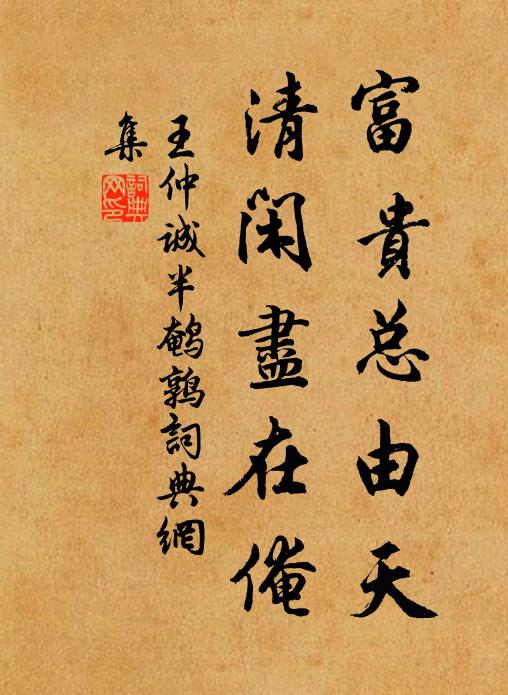 富貴总由天
清閑盡在俺
王仲诚半鵪鶉詞典網
集
詞典
网印